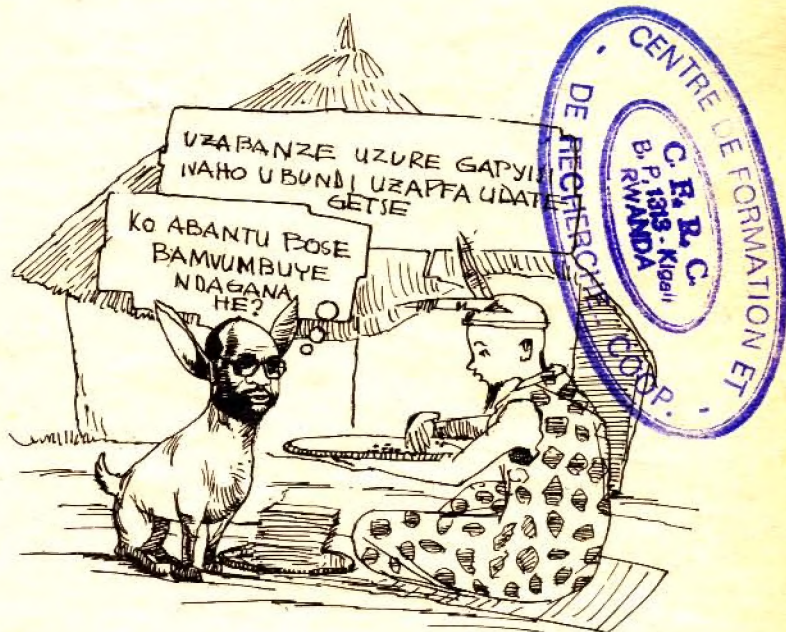 UZABANZE UZURE GAPYISI
NAHO UBUNDI UZAPFA UDATE
GETSE
KO ABANTU BOSE
BAMVUMBUYE
NDAGANA
HE?
CENTRE DE FORMATION ET
DE RECHERCHE COOP.
C.F.R.C.
B.P. 1313 - Kigali
RWANDA